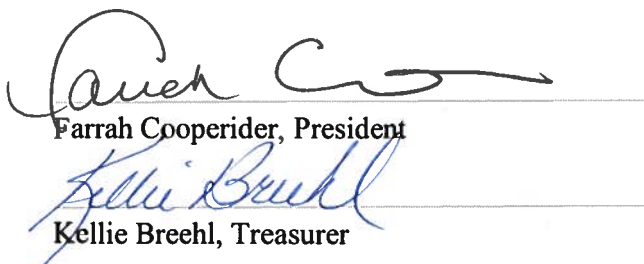 Farrah C
Farrah Cooperider, President
Kellie Breehl
Kellie Breehl, Treasurer